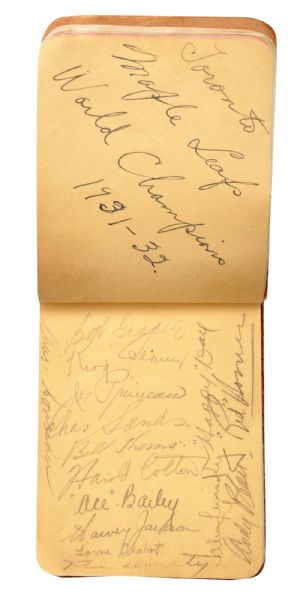 Toronto
Maple Leafs
World Champions
1931-32.
Bob Gracie
King Clancy
Joe Primeau
Chas Sands.
Bill Thoms.
Harold Cotton
"Ace" Bailey
Harvey Jackson
Lorne Chabot.
"Happy" Day
"Red" Horner
Andy Blair
Alex Levinsky